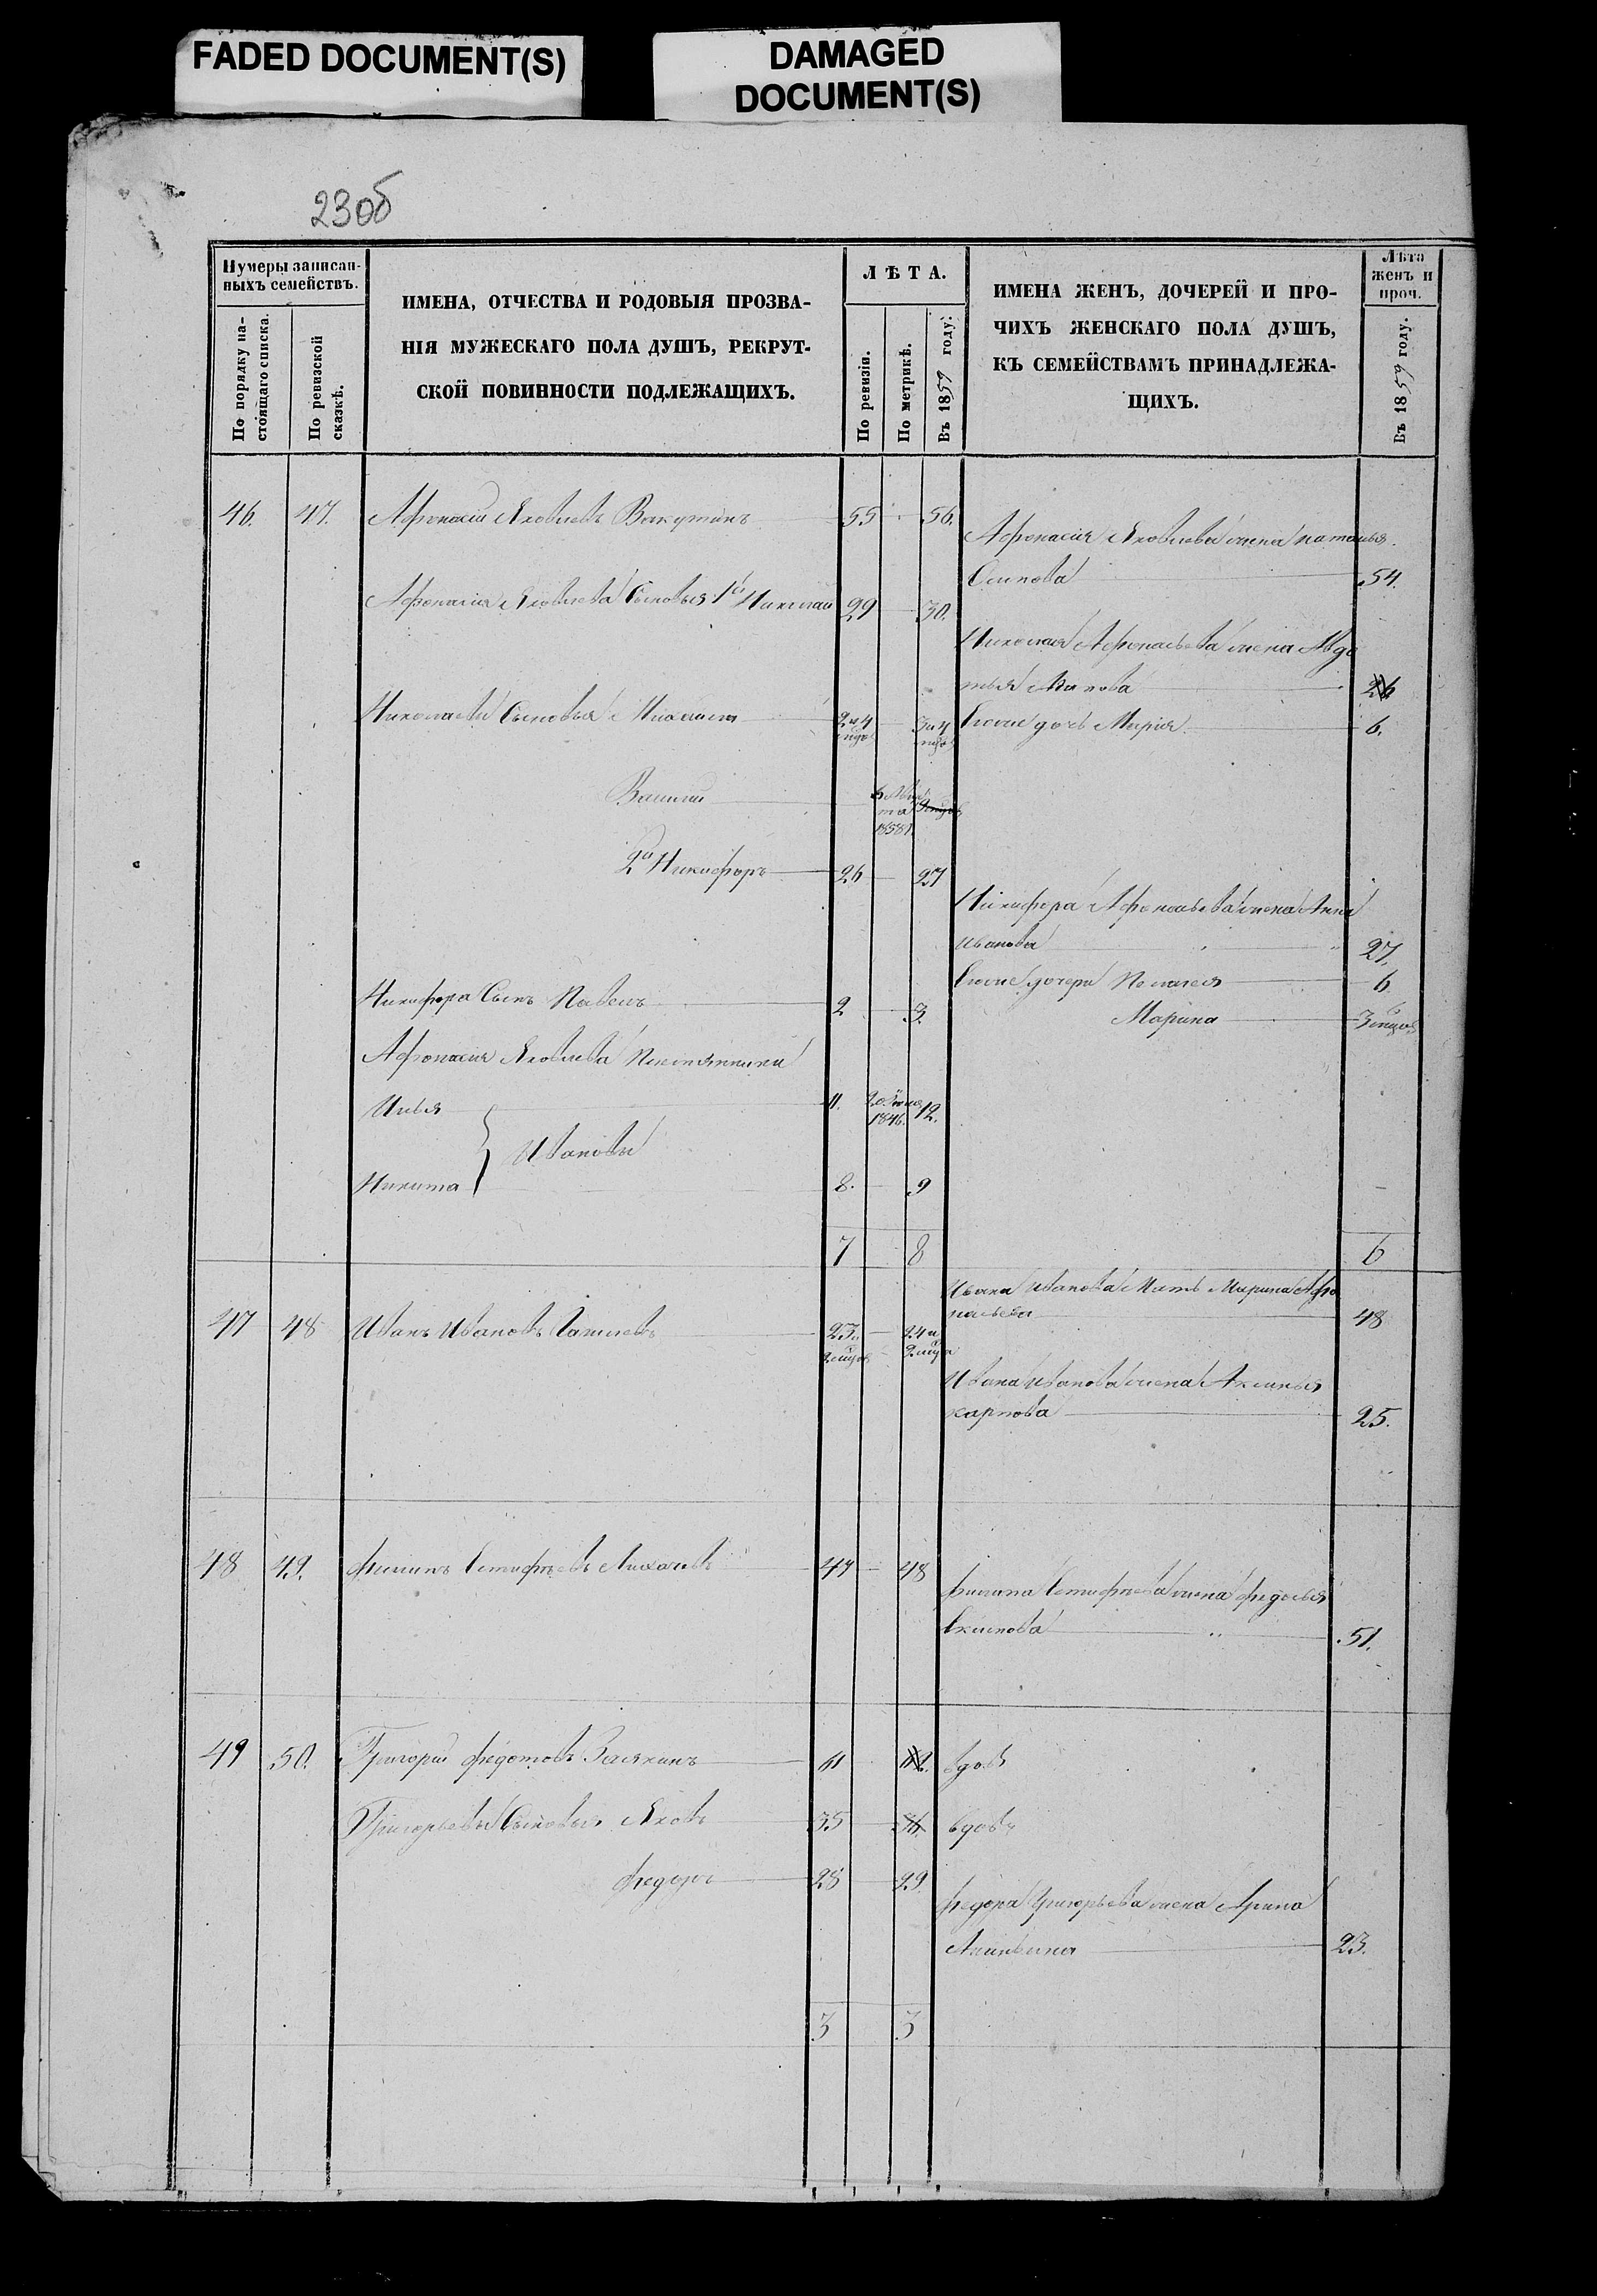 FADED DOCUMENT(S)
DAMAGED
DOCUMENT(S)
23об
Нумеры записан-
ныхъ семействъ.
По порядку на-
стоящаго списка.
По ревизской
сказкѣ.
ИМЕНА, ОТЧЕСТВА И РОДОВЫЯ ПРОЗВА-
НІЯ МУЖЕСКАГО ПОЛА ДУШЪ, РЕКРУТ-
СКОЙ ПОВИННОСТИ ПОДЛЕЖАЩИХЪ.
ЛѢТА.
По ревизіи.
По метрикѣ.
Въ 1859 году.
ИМЕНА ЖЕНЪ, ДОЧЕРЕЙ И ПРО-
ЧИХЪ ЖЕНСКАГО ПОЛА ДУШЪ,
КЪ СЕМЕЙСТВАМЪ ПРИНАДЛЕЖА-
ЩИХЪ.
Лѣта
женъ и
проч.
Въ 1859 году.
46. 47. Афонасій Яковлевъ Вакутинъ 55 56.
Афонасія Яковлева жена Наталья
Осипова 54.
Афонасія Яковлева Сыновья 1й Николай 29 30.
Николая Афонасьева жена Авдо
тья 26
Николаевы Сыновья Михаилъ 2 и 4 3 и 4
Ево же дочь Марія 6.
Василій 1858
2й Никифоръ 26 27
Никифора Афонасьева жена Анна
Иванова 27.
Ево же дочери Пелагея 6
Никифора Сынъ Павелъ 2 3.
Марина 3 мцов
Афонасія Яковлева
Илья 11. 20 Іюля 1846. 12.
Ивановы
Никита 8. 9
7 8 6
Ивана Иванова Мать Марина Афо
насьева 48
47 48 Иванъ Ивановъ 23. 24 и
2 мцов 2 мцa
Ивана Иванова жена Аксинья
Карпова 25.
48 49. Филипъ Естифѣевъ Лихачевъ 47 48
Филипа Естифѣева жена Федосья
51.
49 50. Григорій Федотовъ 61 62. вдовъ
Григорьевы Сыновья Яковъ 35 36. вдовъ
Федоръ 28 29
Федора Григорьева жена Арина
23.
3 3